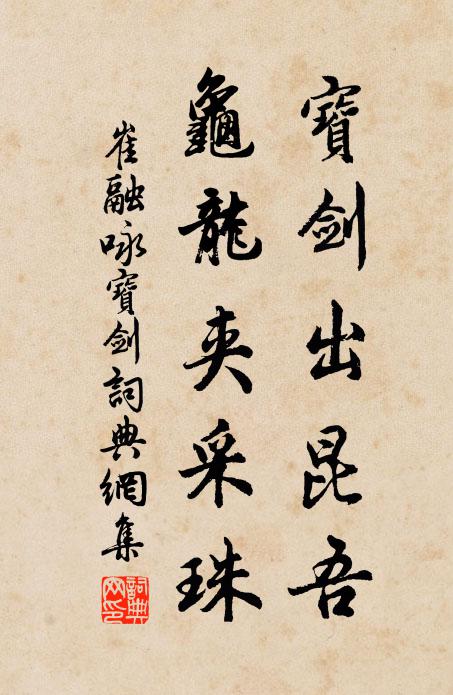 寶劍出昆吾
龜龍夾采珠
崔融咏寶劍詞典網集
詞典網印